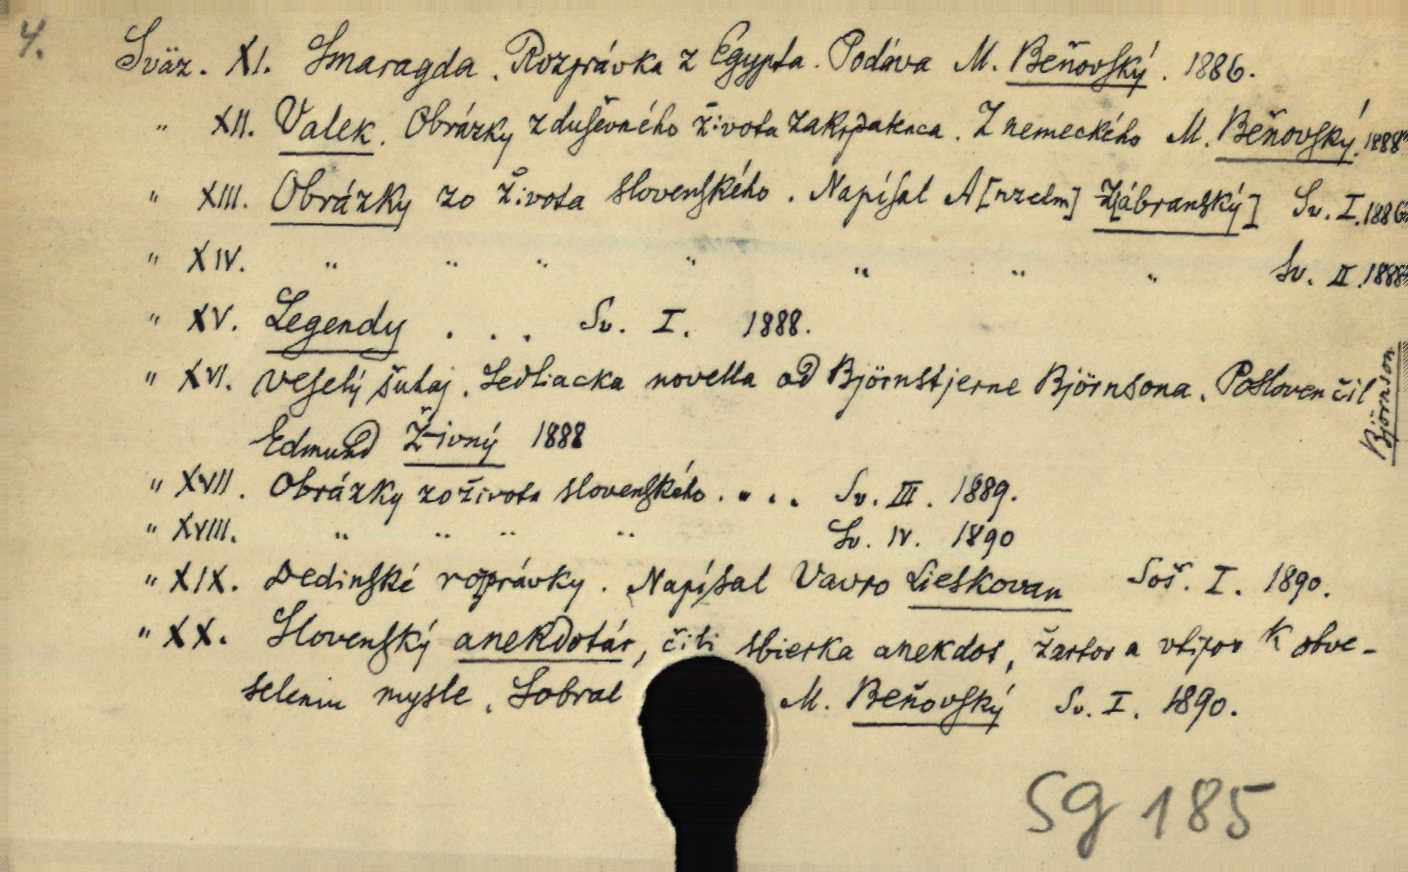 4.
Sväz. XI. Smaragda. Rozprávka z Egypta. Podáva M. Beňovský. 1886.
" XII. Valek. Obrázky z duševného života zakrpatenca. Z nemeckého M. Beňovský. 1888
" XIII. Obrázky zo života slovenského. Napísal A[nzelm] Z[ábranský] Sv. I. 1886
" XIV. " " " " " " " Sv. II. 1888
" XV. Legendy . . . Sv. I. 1888.
" XVI. Veselý šuhaj. Sedliacka novella od Björnstjerne Björnsona. Poslovenčil
Edmund Živný 1888
Björnson
" XVII. Obrázky zo života slovenského. . . . Sv. III. 1889.
" XVIII. " " " " Sv. IV. 1890
" XIX. Dedinské rozprávky. Napísal Vavro Lieskovan Soš. I. 1890.
" XX. Slovenský anekdotár, čili sbierka anekdot, žartov a vtipov k obve-
seleniu mysle. Sobral M. Beňovský Sv. I. 1890.
Sg 185